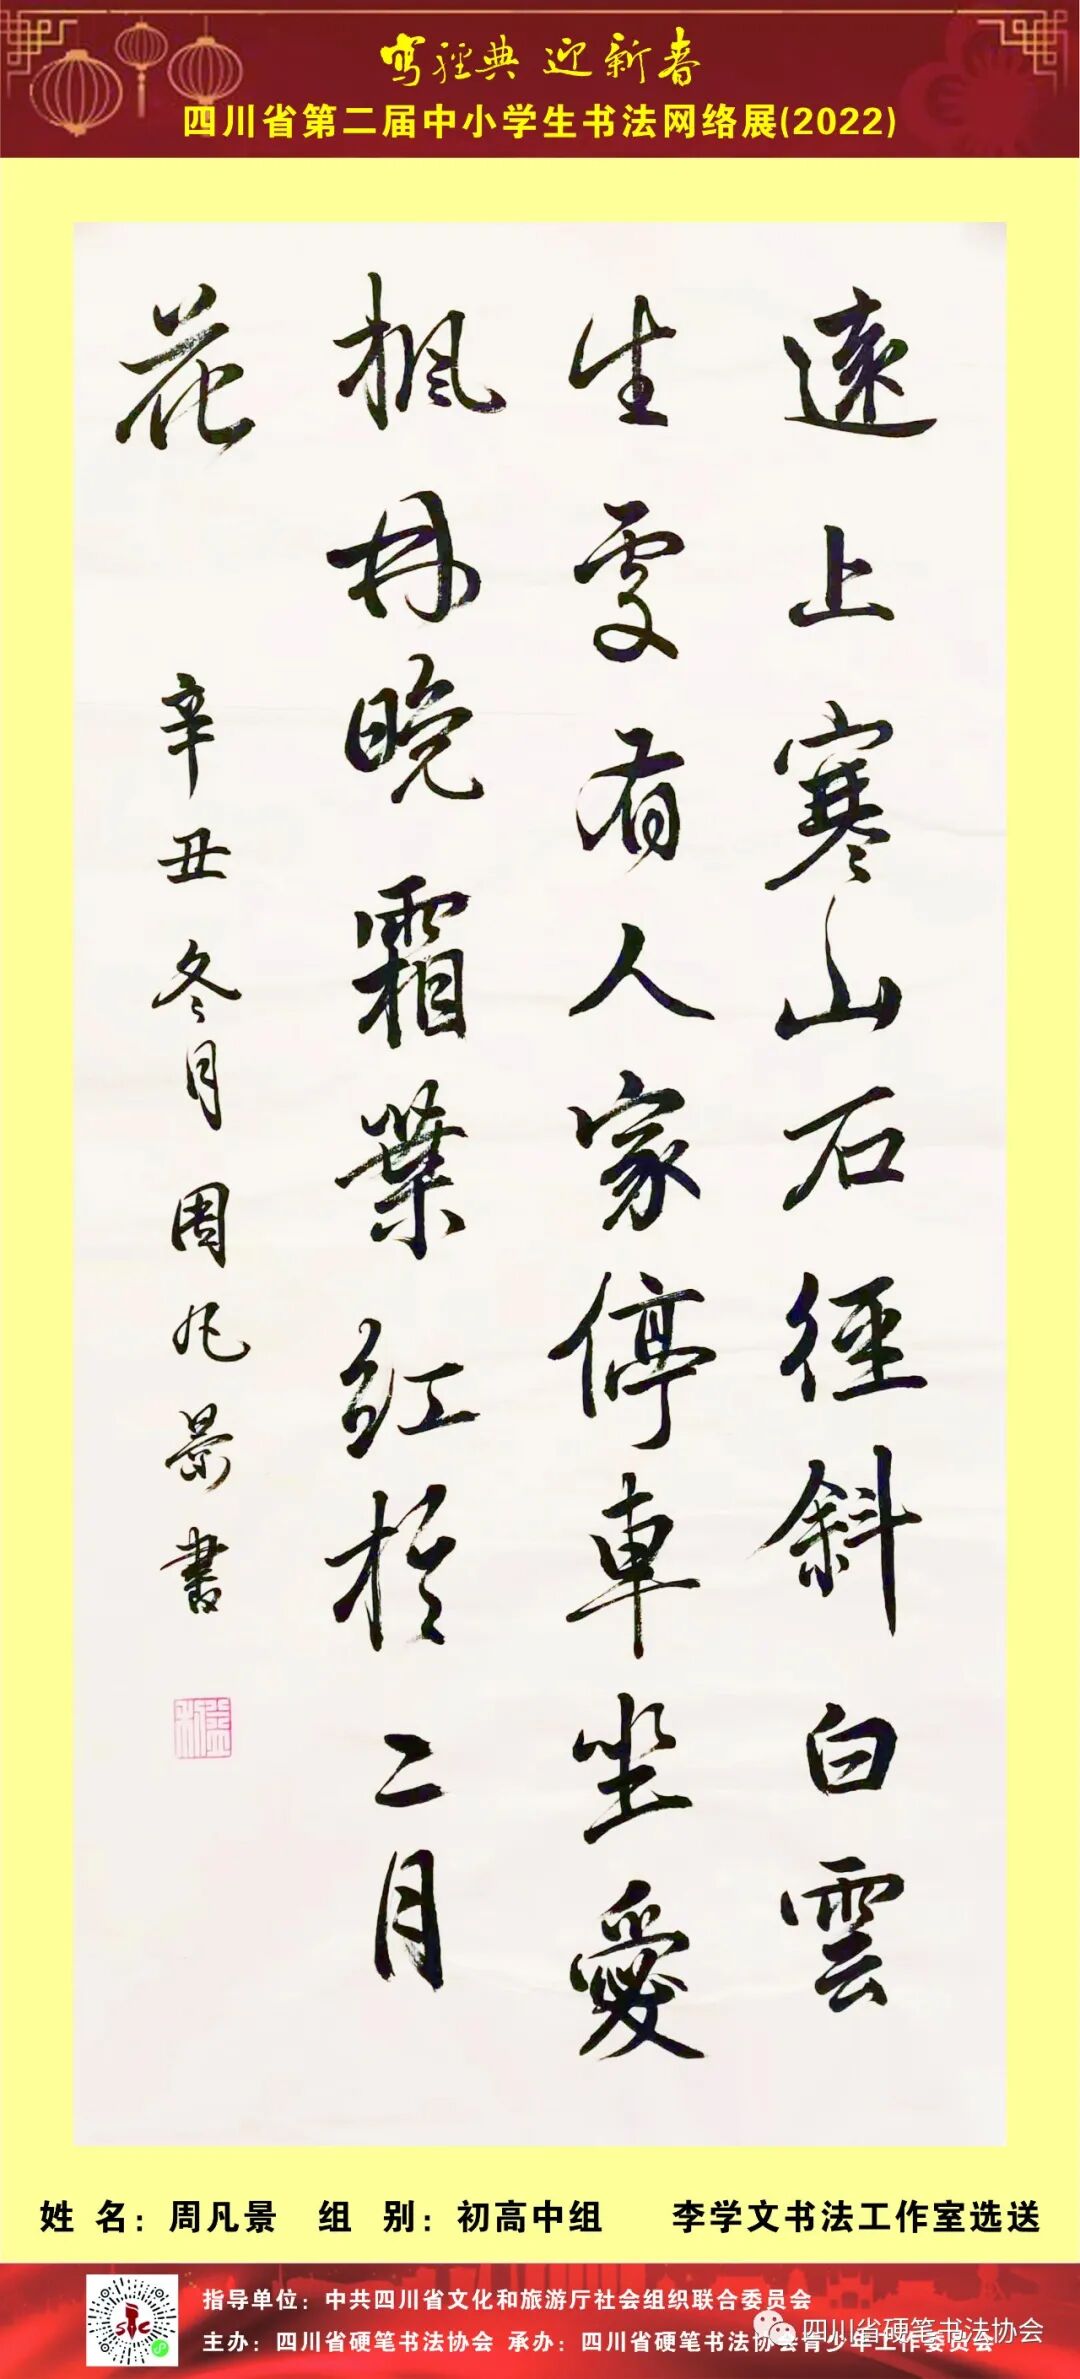 写经典 迎新春
四川省第二届中小学生书法网络展(2022)
遠上寒山石徑斜白雲
生處有人家停車坐愛
楓林晚霜葉紅於二月
花
辛丑冬月周凡景書
姓 名：周凡景 组 别：初高中组 李学文书法工作室选送
指导单位：中共四川省文化和旅游厅社会组织联合委员会
主办：四川省硬笔书法协会 承办：四川省硬笔书法协会青少年工作委员会
四川省硬笔书法协会